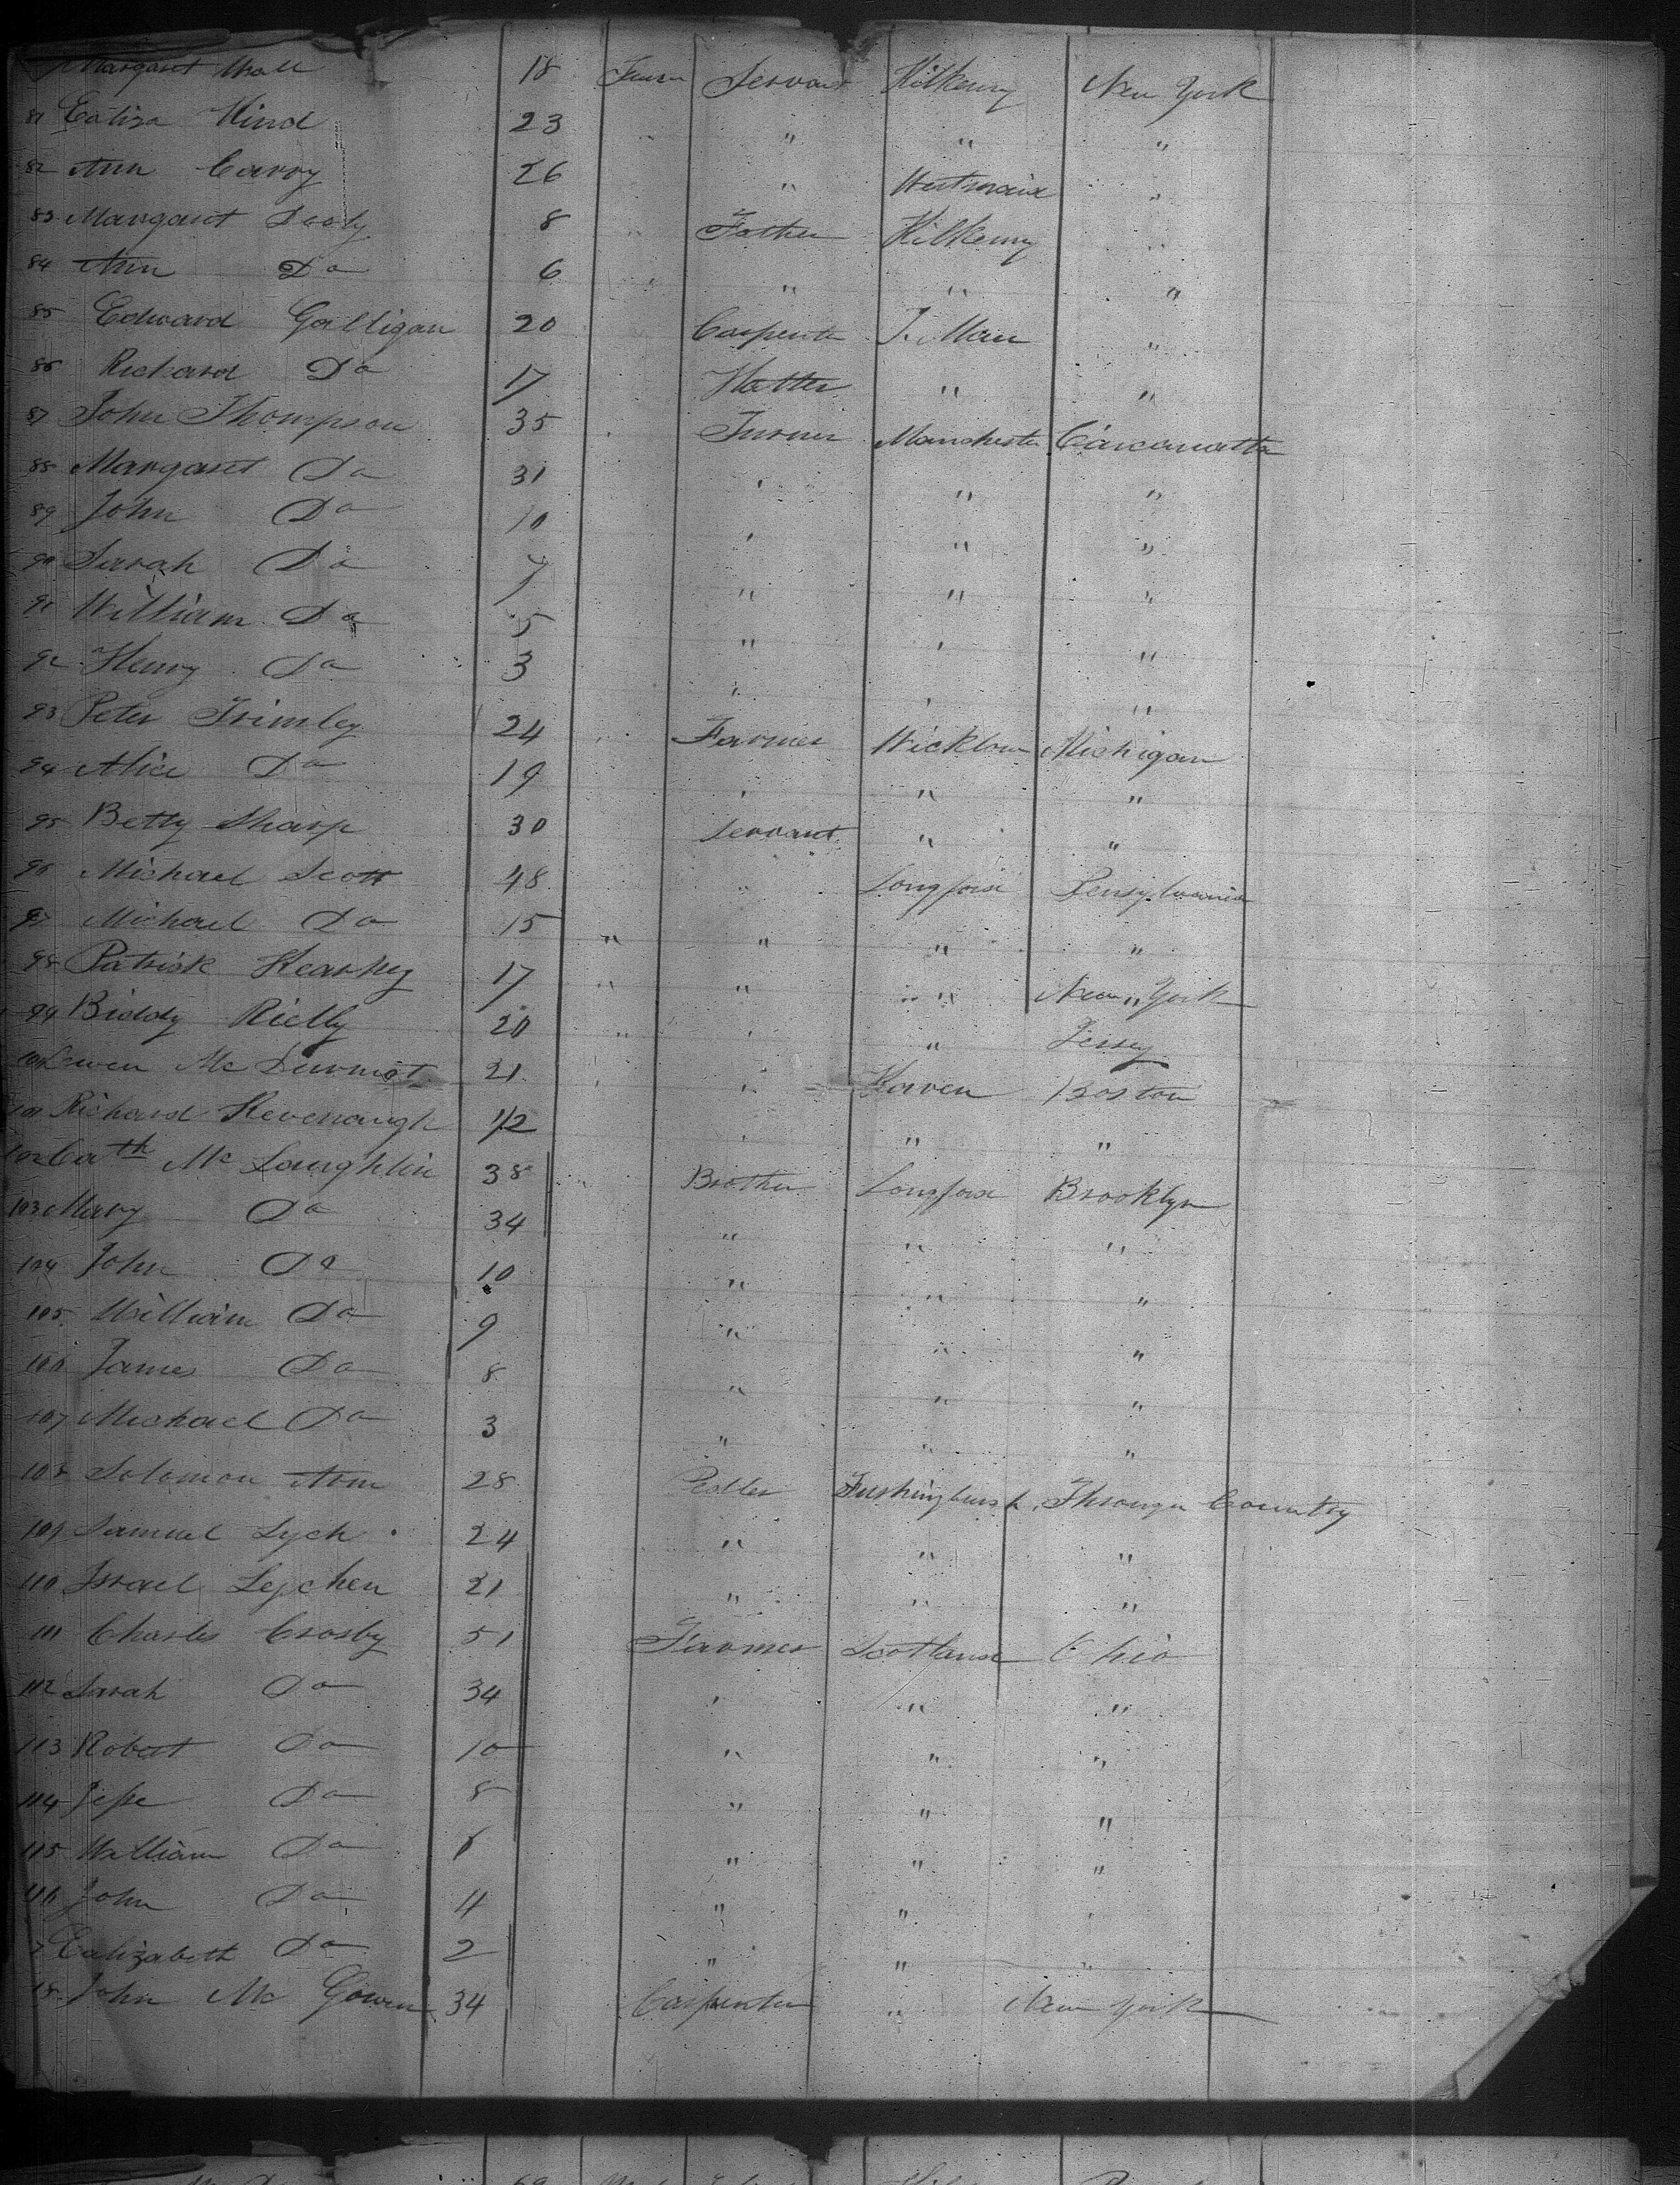 Margaret 18 Servant Kilkenny New York
81 Ealiza Hind 23 " " "
82 Ann Carey 26 " "
83 Margaret Dooly 8 Father Kilkenny "
84 Ann Do 6 " " "
85 Edward Galligan 20 Carpenter "
86 Richard Do 17 Hatter " "
87 John Thompson 35 Turner Manchester
88 Margaret Do 31 " " "
89 John Do 10 " " "
90 Sarah Do 7 " " "
91 William Do 5 " " "
92 Henry Do 3 " " "
93 Peter Trimley 24 Farmer Wicklow Michigan
94 Alice Do 19 " " "
95 Betty Sharp 30 Servant " "
96 Michael Scott 48 " Longford Pensylvania
97 Michael Do 15 " " " "
98 Patrick Kearney 17 " " " New York
99 Biddy Rielly 20 " " " Jersey
100 Mc Durmot 21 " " Kaven Boston
101 Richard Kevenaugh 1/2 " " "
102 Cath Mc Laughlin 38 " Brother Longford Brooklyn
103 Mary Do 34 " " "
104 John Do 10 " " "
105 William Do 9 " " "
106 James Do 8 " " "
107 Michael Do 3 " " "
108 Solomon 28 Pedler Through Country
109 Samuel Lych 24 " " "
110 Israel Lychen 21 " " "
111 Charles Crosby 51 Farmer Scotland Ohio
112 Sarah Do 34 " " "
113 Robert Do 10 " " "
114 Jesse Do 8 " " "
115 William Do 6 " " "
116 John Do 4 " " "
7 Ealizabeth Do 2 " " "
18 John Mc Gowen 34 Carpenter " New York